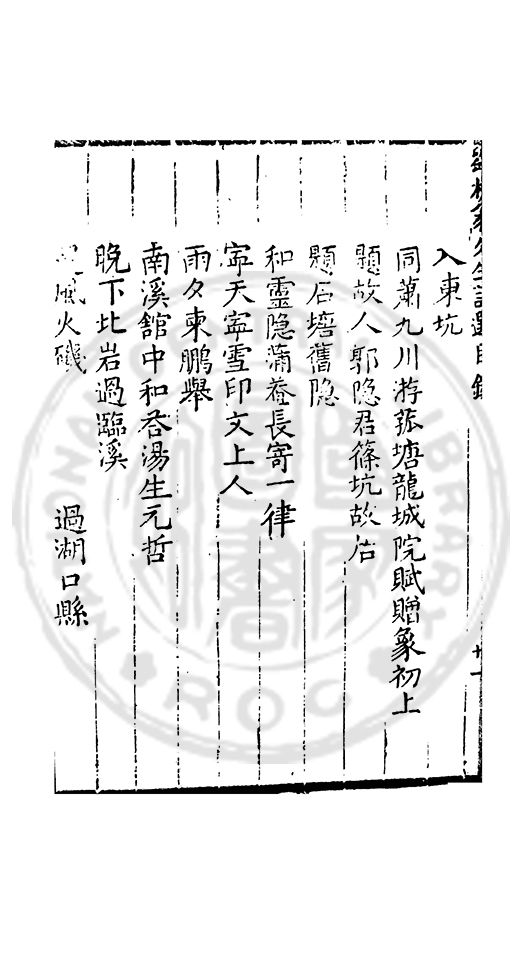 詩選目錄
入東坑
同蕭九川游菰塘龍城院賦贈象初上
題故人郭隐君篠坑故居
題石塘舊隐
和靈隐蒲菴長寄一律
寕天寕雪印文上人
雨夕柬鵬舉
南溪舘中和荅湯生元哲
晚下北岩過臨溪
風火磯　過湖口縣